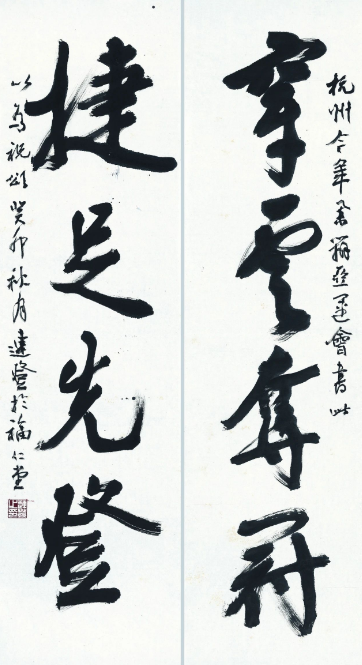 杭州今年舉辦亞運會書此
穿雲奪冠
捷足先登
以為祝頌癸卯秋月達於福仁堂